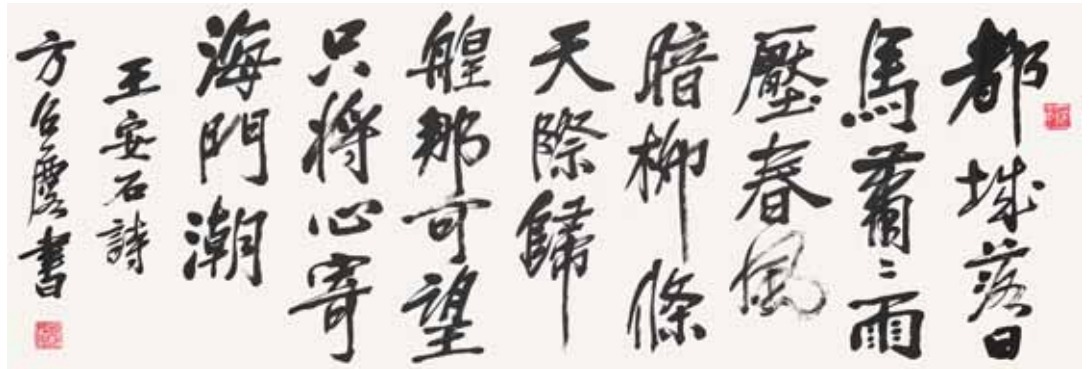 都城落日
馬蕭〻雨
壓春風
暗柳條
天際歸
艎那可望
只將心寄
海門潮
王安石詩
方召麐書